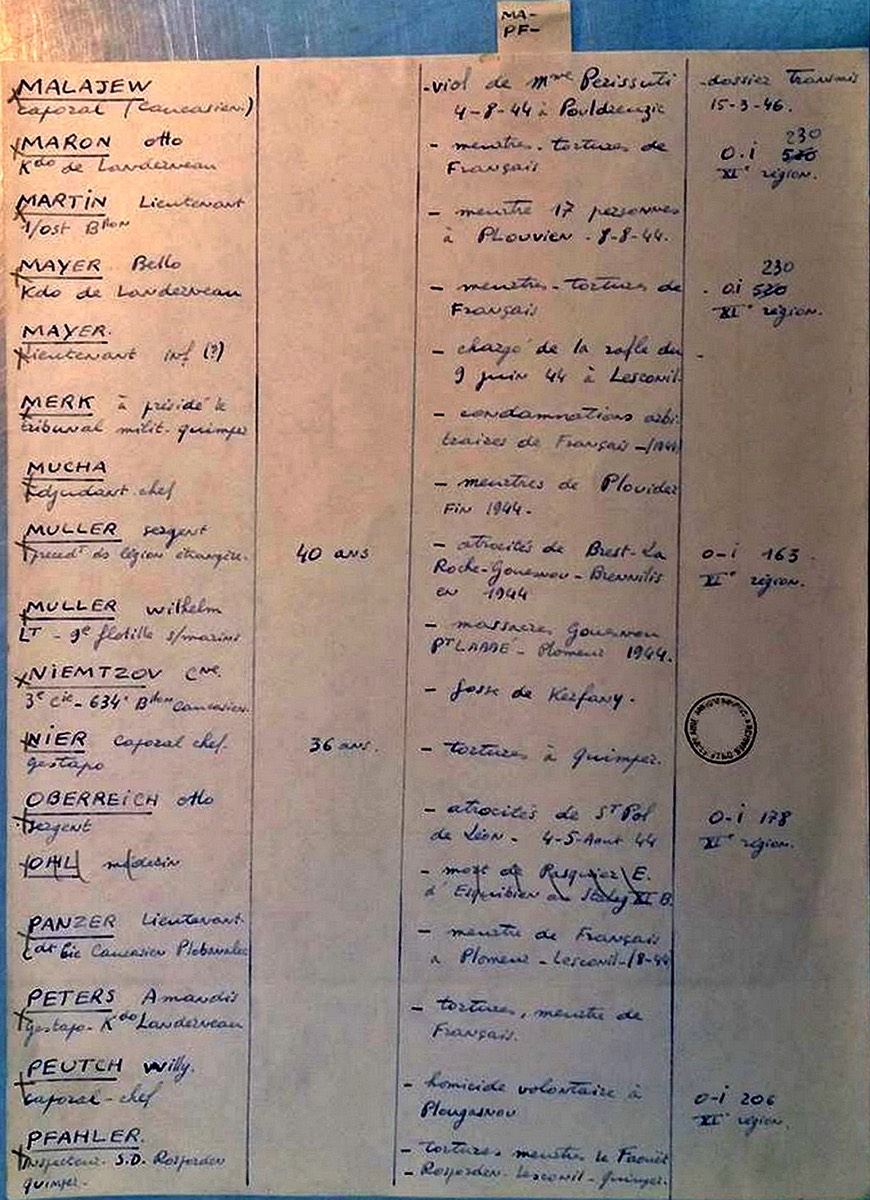 MA-
PF-
MALAJEW -viol de mme Perissuti -dossier transmis
caporal (caucasien) 4-8-44 à Pouldreuzic 15-3-46.
MARON Otto - meurtres. tortures de 230
Kdo de Landerneau Français O.i 520
XIe région.
MARTIN Lieutenant - meurtre 17 personnes
1/Ost Btlon à PLOUVIEN - 8-8-44.
MAYER Bello - meurtres - tortures de 230
Kdo de Landerneau Français . O.i 520
XIe région.
MAYER. - chargé de la rafle du -
Lieutenant inf (?) 9 juin 44 à Lesconil.
MERK à présidé le - condamnations arbi
tribunal milit. quimper traires de Français -/1944
MUCHA - meurtres de Plouider
Adjudant-chef Fin 1944.
MULLER sergent - atrocités de Brest-La
précedt ds légion étrangère. 40 ans Roche-Gouesnou-Brennilis o-i 163.
en 1944 XIe région.
MULLER Wilhelm - massacres Gouesnou
LT - 9e flotille s/marins PT LABBE - Plomeur 1944.
NIEMTZOV Cne. - fosse de Kerfany.
3e Cie - 634e Btlon Caucasien.
NIER caporal chef. 36 ans. - tortures à Quimper.
gestapo
OBERREICH Otto - atrocités de ST Pol O-i 178
sergent de Léon - 4-5-Aout 44 XIe région.
OHL médecin - mort de Pasquier E.
d'Esquibien au Stalag XI B.
PANZER Lieutenant. - meurtre de Français
Cdt Cie Caucasien Plobannalec à Plomeur - Lesconil -/8-44
PETERS Amandis - tortures, meurtre de
gestapo - Kdo Landerneau Français.
PEUTCH Willy. - homicide volontaire à 0-i 206
caporal-chef Plougasnou XIe région.
PFAHLER. - tortures meurtres le Faouët
inspecteur S.D. Rosporden - Rosporden. Lesconil - Quimper.
quimper.